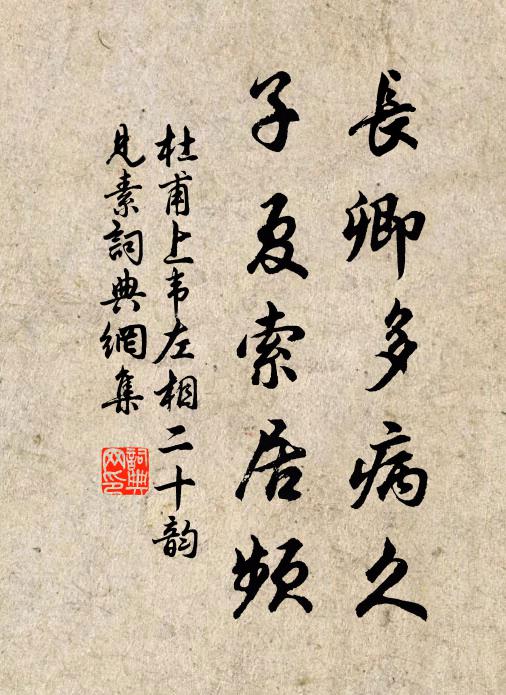 長卿多病久
子夏索居頻
杜甫上韦左相二十韵
見素詞典網集
詞典
网印